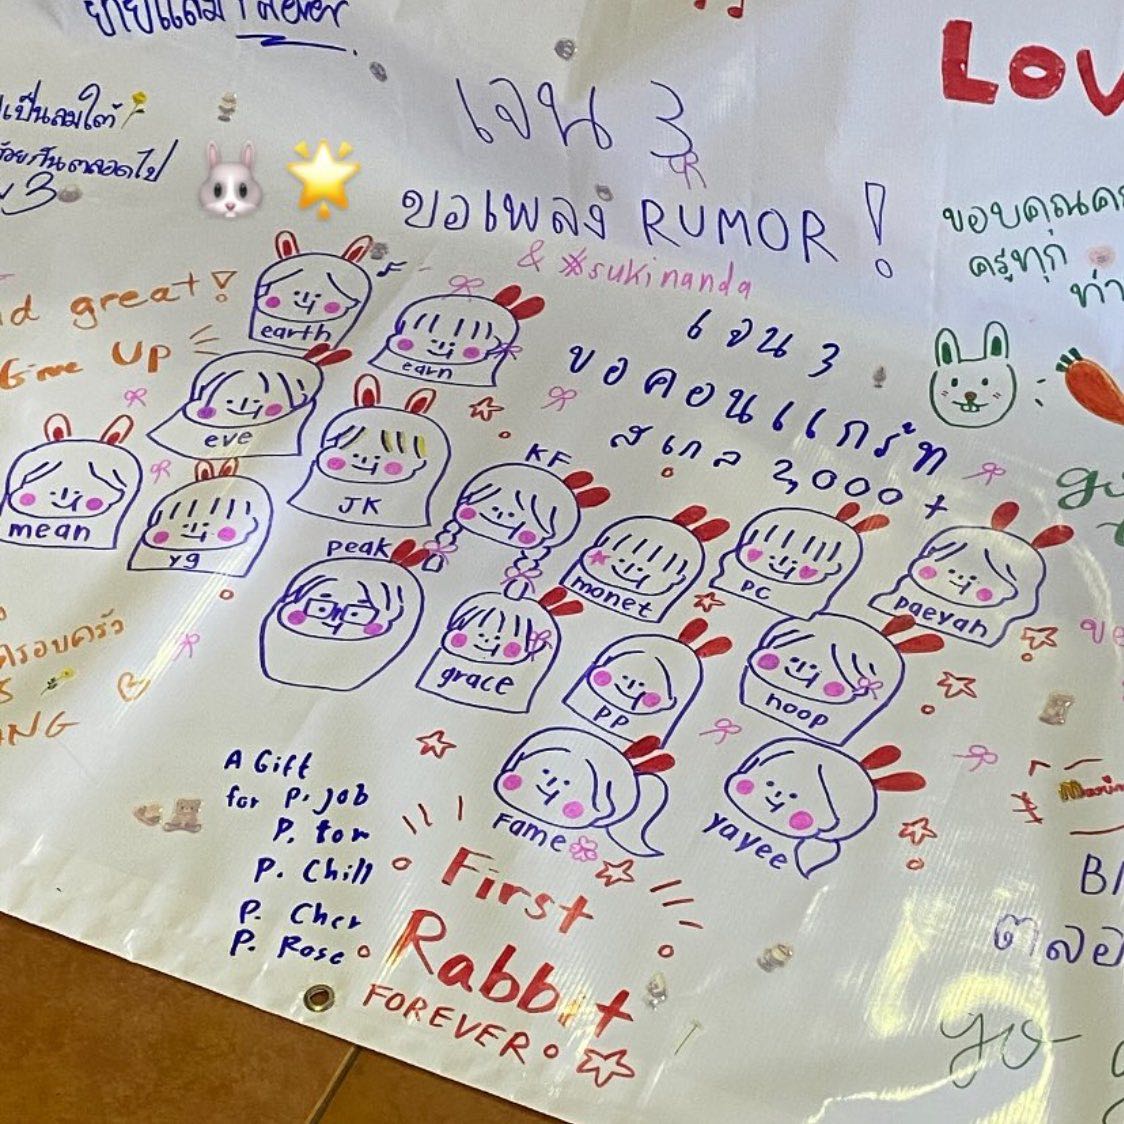 ยายแถม forever
LOV
เป็นลมใต้
ด้วยกันตลอดไป
3
เจน 3
ขอเพลง RUMOR !
& #sukinanda
ขอบคุณ
ครูทุก
ท่า
great!
Give Up
เจน 3
ขอคอนเสิร์ท
สเกล 2,000 +
earth
earn
eve
JK
KF
mean
yg
peak
monet
PC
paeyah
grace
PP
noop
Fame
yayee
ครอบครัว
NG
A Gift
for P. job
P. tor
P. Chill
P. Cher
P. Rose
First
Rabbit
FOREVER
ตลอ